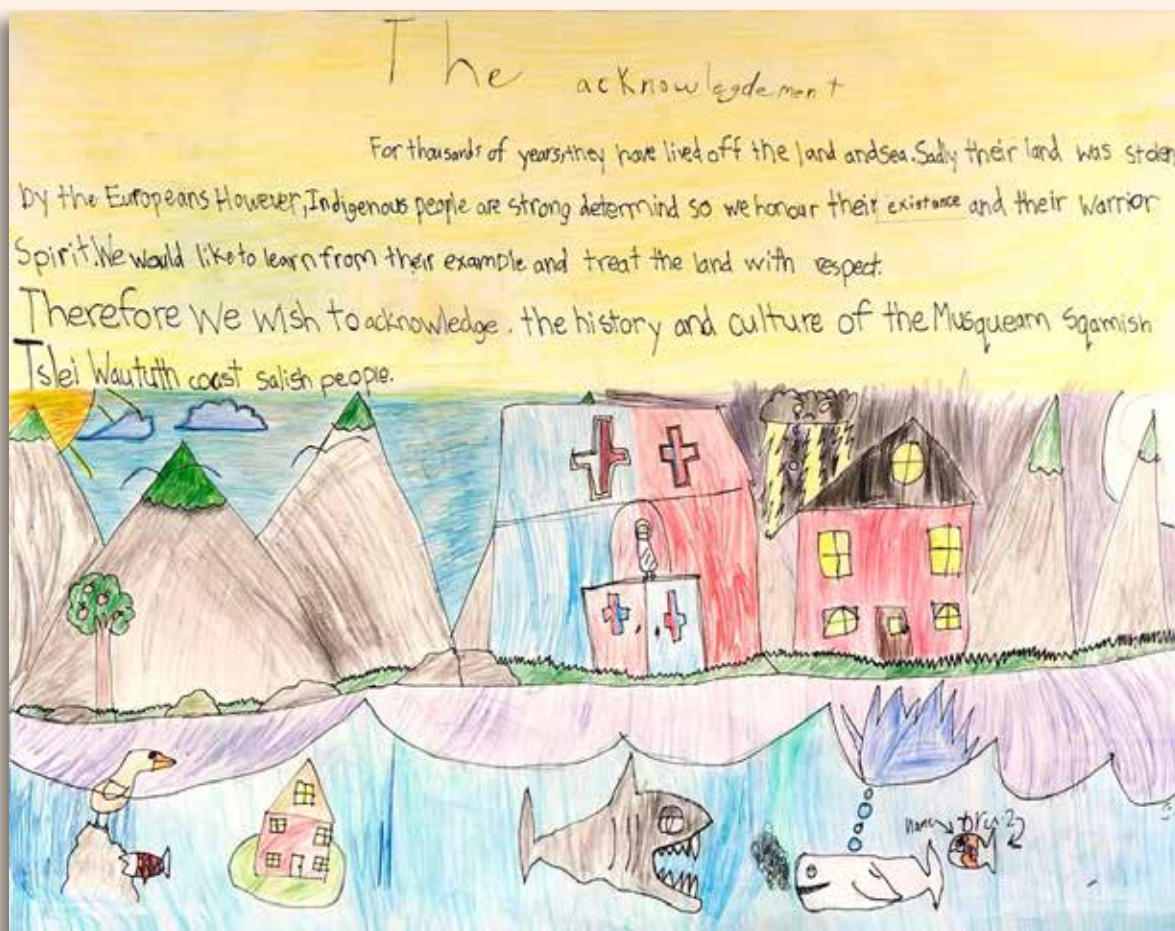 The acknowlegdement
For thousands of years, they have lived off the land and sea. Sadly their land was stolen
by the Europeans However, Indigenous people are strong determind so we honour their existance and their warrior
Spirit. We would like to learn from their example and treat the land with respect.
Therefore We wish to acknowledge. the history and culture of the Musqueam Sqamish
Tslei Waututh coast salish people.